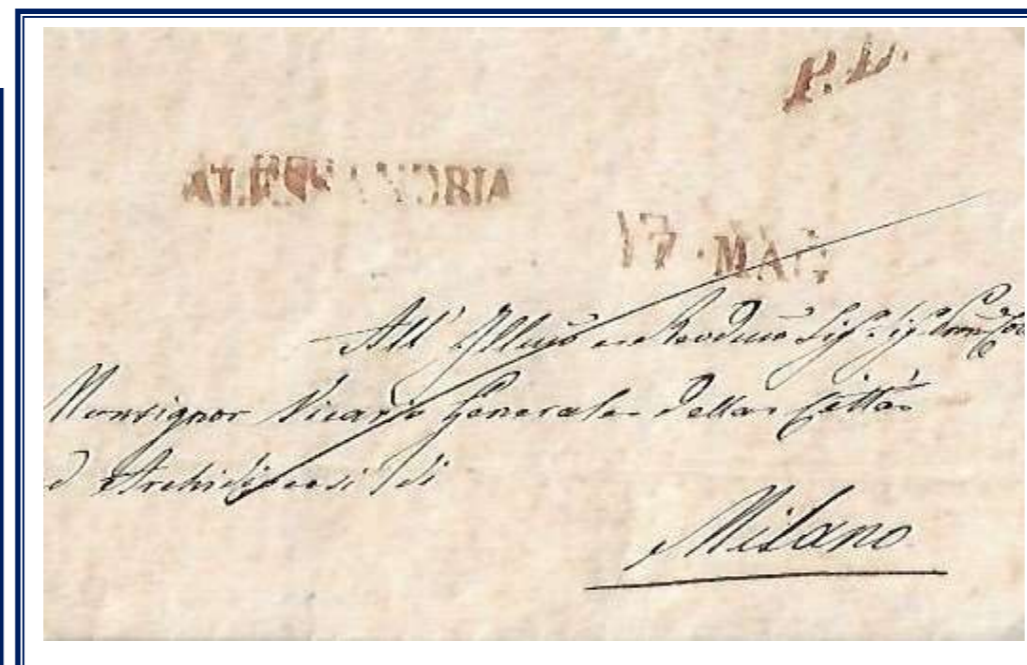 P.D.
ALESSANDRIA
17 MAG
All' Illmo e Revdmo Sigr
Monsignor Vicario Generale della Città
d Archidiocesi di
Milano